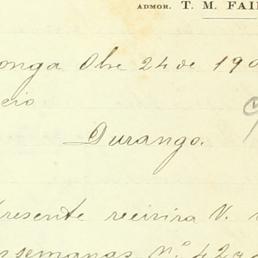 ADMOR. T. M. FAI
onga Obre 24 de 190
cio
Durango.
resente recivira V.
semanas Nº 42